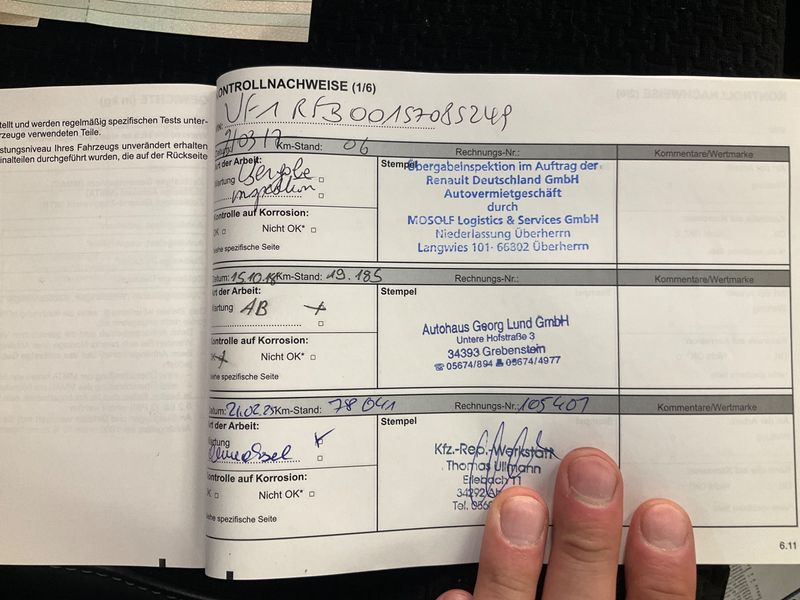 tellt und werden regelmäßig spezifischen Tests unter-
rzeuge verwendeten Teile.
stungsniveau Ihres Fahrzeugs unverändert erhalten
inalteilen durchgeführt wurden, die auf der Rückseite
ONTROLLNACHWEISE (1/6)
VF1RFB00157085249
Km-Stand: 06
Rechnungs-Nr.:
Kommentare/Wertmarke
rt der Arbeit:
artung
Inspektion
ontrolle auf Korrosion:
OK
Nicht OK*
ehe spezifische Seite
Stempel
Übergabeinspektion im Auftrag der
Renault Deutschland GmbH
Autovermietgeschäft
durch
MOSOLF Logistics & Services GmbH
Niederlassung Überherrn
Langwies 101· 66802 Überherrn
Datum: 15.10.18 Km-Stand: 19.185
Rechnungs-Nr.:
Kommentare/Wertmarke
rt der Arbeit:
artung AB
ontrolle auf Korrosion:
OK
Nicht OK*
ehe spezifische Seite
Stempel
Autohaus Georg Lund GmbH
Untere Hofstraße 3
34393 Grebenstein
05674/894 05674/4977
Datum: 21.02.25 Km-Stand: 78041
Rechnungs-Nr.: 105401
Kommentare/Wertmarke
rt der Arbeit:
artung
ontrolle auf Korrosion:
K
Nicht OK*
ehe spezifische Seite
Stempel
Kfz.-Rep.-Werkstatt
Thomas Ullmann
Erlebach 11
34292
Tel.
6.11